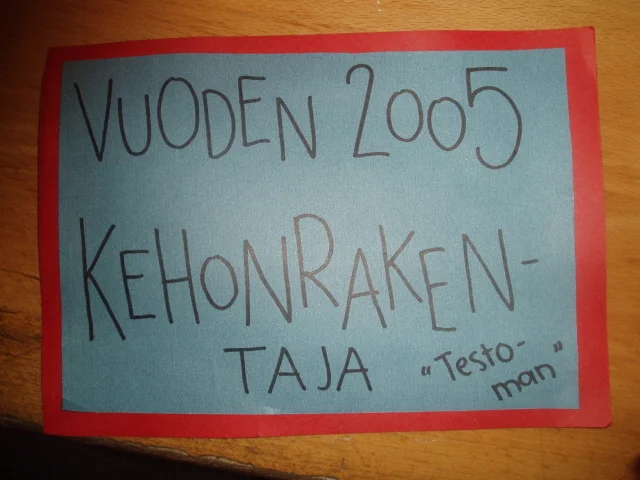 VUODEN 2005
KEHONRAKEN-
TAJA "Testo-
man"